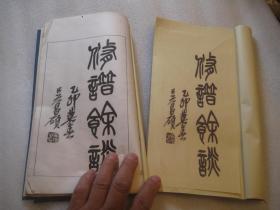 修譜餘談
乙卯
吳昌碩
修譜餘談
乙卯
吳昌碩